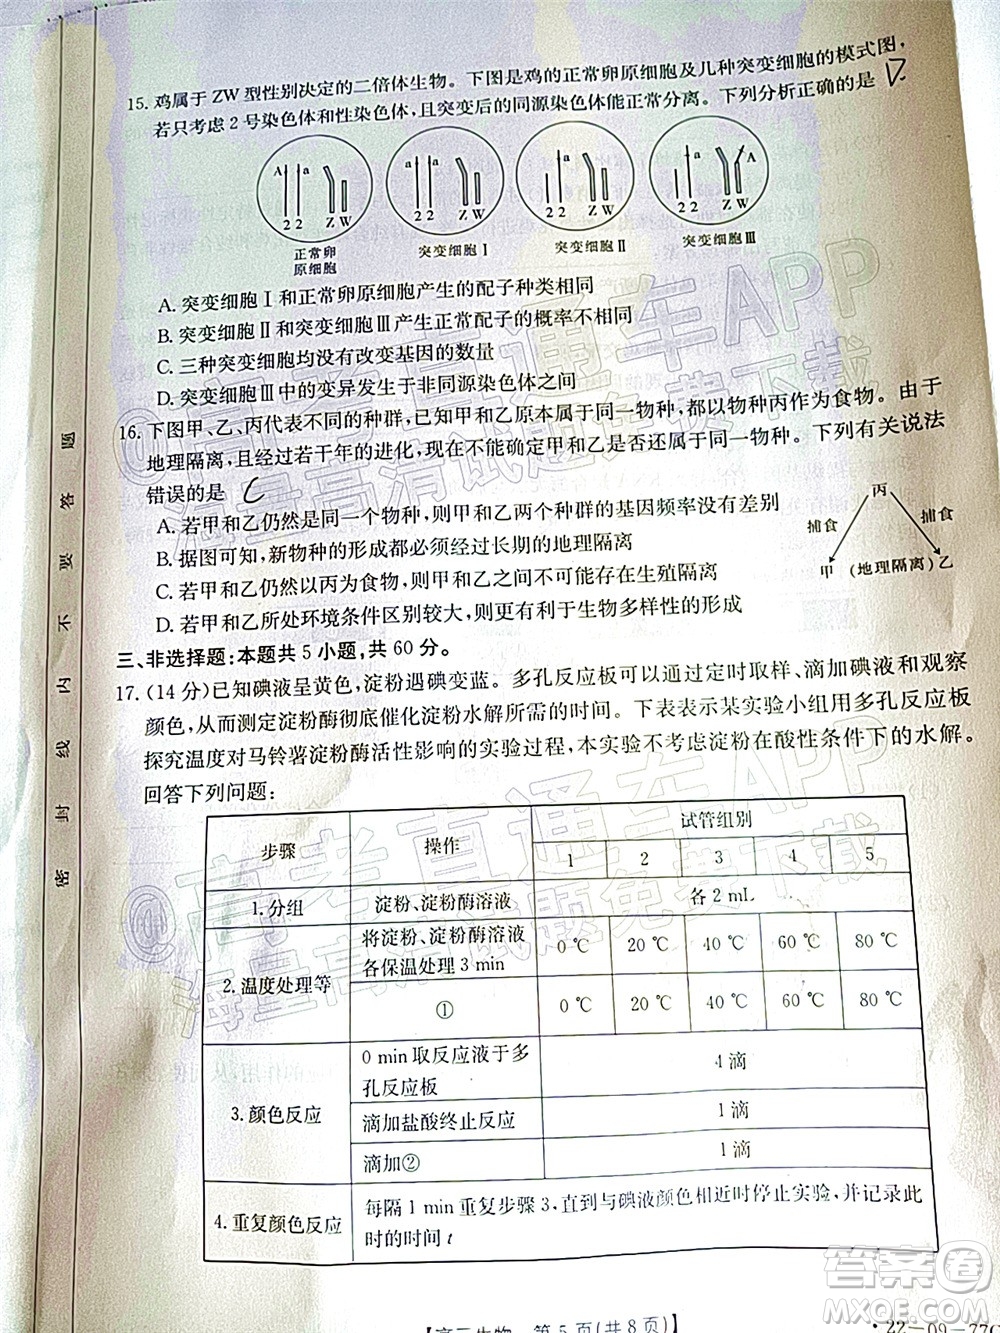 15. 鸡属于 ZW 型性别决定的二倍体生物。下图是鸡的正常卵原细胞及几种突变细胞的模式图,
若只考虑 2 号染色体和性染色体,且突变后的同源染色体能正常分离。下列分析正确的是 D
A a a a a a A
2 2 Z W 2 2 Z W 2 2 Z W 2 2 Z W
正常卵原细胞 突变细胞Ⅰ 突变细胞Ⅱ 突变细胞Ⅲ
A. 突变细胞Ⅰ和正常卵原细胞产生的配子种类相同
B. 突变细胞Ⅱ和突变细胞Ⅲ产生正常配子的概率不相同
C. 三种突变细胞均没有改变基因的数量
D. 突变细胞Ⅲ中的变异发生于非同源染色体之间
16. 下图甲、乙、丙代表不同的种群,已知甲和乙原本属于同一物种,都以物种丙作为食物。由于
地理隔离,且经若干年的进化,现在不能确定甲和乙是否还属于同一物种。下列有关说法
错误的是 C
A. 若甲和乙仍然是同一个物种,则甲和乙两个种群的基因频率没有差别
B. 据图可知,新物种的形成都必须经过长期的地理隔离
C. 若甲和乙仍然以丙为食物,则甲和乙之间不存在生殖隔离
D. 若甲和乙所处环境条件区别较大,则有利于生物多样性的形成
丙
捕食 捕食
甲 (地理隔离) 乙
三、非选择题:本题共 5 小题,共 60 分。
17. (14 分)已知碘液呈黄色,淀粉遇碘变蓝。多孔反应板可通过定时取样、滴加碘液和观察
颜色,从而测定淀粉酶彻底催化淀粉水解所需的时间。下表表示某实验小组用多孔反应板
探究温度对马铃薯淀粉酶活性影响的实验过程,本实验不考虑淀粉在酸性条件下的水解。
回答下列问题:
步骤 操作 试管组别
1 2 3 4 5
1.分组 淀粉、淀粉酶溶液 各 2 mL
2.温度处理等 将淀粉、淀粉酶溶液各保温处理 3 min 0 ℃ 20 ℃ 40 ℃ 60 ℃ 80 ℃
① 0 ℃ 20 ℃ 40 ℃ 60 ℃ 80 ℃
3.颜色反应 0 min 取反应液于多孔反应板 4 滴
滴加盐酸终止反应 1 滴
滴加② 1 滴
4.重复颜色反应 每隔 1 min 重复步骤 3,直到与碘液颜色相近时停止实验,并记录此
时的时间 t
【高三生物 第 5 页(共 8 页)】
密 封 线 内 不 要 答 题
@高考直通车APP
海量高清试题免费下载
@高考直通车APP
海量高清试题免费下载
答案圈
MXQE.COM